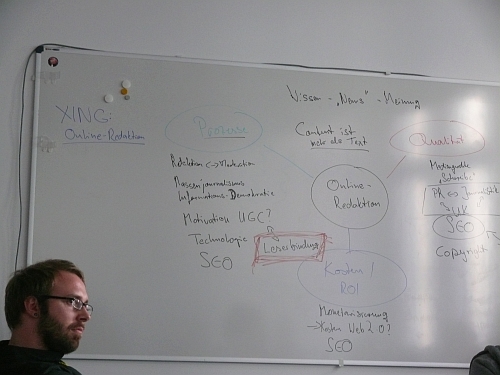 Wissen - "News" - Meinung
XING:
Online-Redaktion
Prozesse
Content ist
mehr als Text
Qualität
Redaktion <-> Moderation
Massenjournalismus
Informations-Demokratie
Motivation UGC?
Technologie
SEO
Leserbindung
Online-
Redaktion
Kosten /
ROI
Monetarisierung
→ Kosten Web 2.0?
SEO
"Schreibe"
PR <->
UK
SEO
Copyright